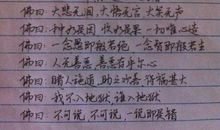 佛曰：大悲无泪，大悟无言，大笑无声
佛曰：种如是因，收如是果，一切唯心造
佛曰：一念愚即般若绝，一念智即般若生
佛曰：人无善恶，善恶存乎尔心
佛曰：睹人施道，助之欢喜，得福甚大
佛曰：我不入地狱，谁入地狱
佛曰：不可说，不可说，一说即是错